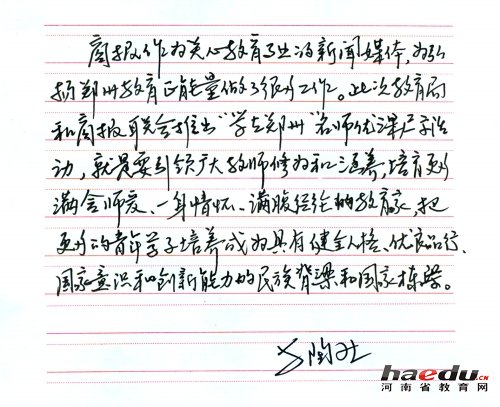 商报作为关心教育事业的新闻媒体，为弘
扬郑州教育正能量做了很多工作。此次教育局
和商报联合推出“学在郑州”名师优课系列活
动，就是要引领广大教师修为和涵养，培育更多
满含师爱、一身情怀、满腹经纶的教育家，把
更多的青年学子培养成为具有健全人格、优良品行、
国家意识和创新能力的民族脊梁和国家栋梁。
haedu.cn
河南省教育网